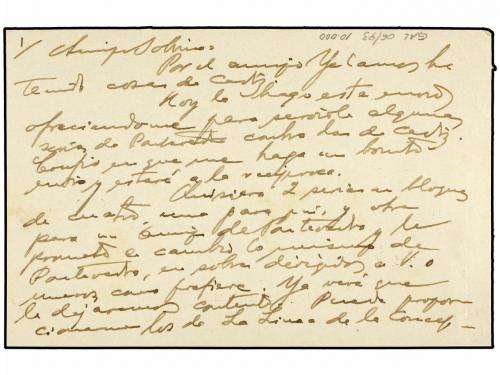 GAL 06/93 10.000
1/ Amigo Sobrino:
Por el amigo he
tenido cosas de Cadiz
Hoy le hago este envio
ofreciendome para servirle algunas
series de Pontevedra contra las de Cadiz.
Confio en que me haga un bonito
envio y estaré a la reciproca.
Quisiera 2 series en bloques
de cuatro, una para mi, y otra
para un amigo de Pontevedra y le
prometo a cambio lo mismo de
Pontevedra, en sobres dirigidos a V. o
nuevos como prefiere. Ya verá que
le dejaremos contento. Puede propor
cionarme los de La Linea de la Concep-